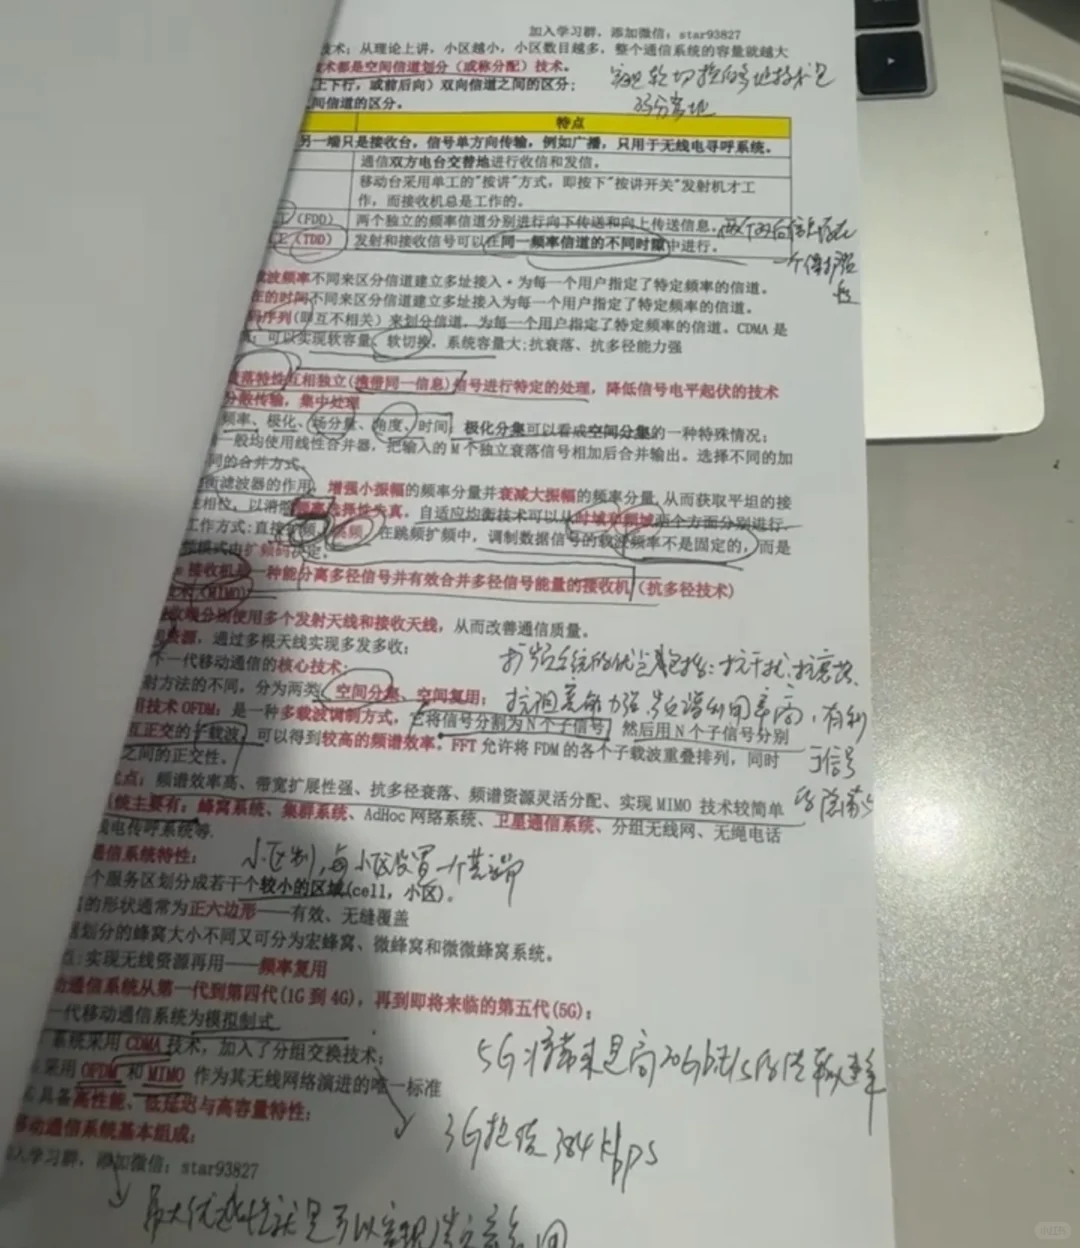 加入学习群，添加微信：star93827
技术：从理论上讲，小区越小，小区数目越多，整个通信系统的容量就越大
技术都是空间信道划分（或称分配）技术。
上下行，或前后向）双向信道之间的区分；
间信道的区分。
特点
另一端只是接收台，信号单方向传输，例如广播，只用于无线电寻呼系统。
通信双方电台交替地进行收信和发信。
移动台采用单工的"按讲"方式，即按下"按讲开关"发射机才工
作，而接收机总是工作的。
（FDD） 两个独立的频率信道分别进行向下传送和向上传送信息。
（TDD） 发射和接收信号可以在同一频率信道的不同时隙中进行。
载波频率不同来区分信道建立多址接入·为每一个用户指定了特定频率的信道。
在的时间不同来区分信道建立多址接入为每一个用户指定了特定频率的信道。
码序列(即互不相关）来划分信道。为每一个用户指定了特定频率的信道。CDMA 是
可以实现软容量、软切换，系统容量大;抗衰落、抗多径能力强
衰落特性互相独立(携带同一信息)信号进行特定的处理，降低信号电平起伏的技术
分散传输，集中处理
频率、极化、场分量、角度、时间 极化分集可以看成空间分集的一种特殊情况；
一般均使用线性合并器，把输入的 M 个独立衰落信号相加后合并输出。选择不同的加
同的合并方式。
衡滤波器的作用，增强小振幅的频率分量并衰减大振幅的频率分量，从而获取平坦的接
性相位，以消除频率选择性失真。自适应均衡技术可以从时域和频域两个方面分别进行。
工作方式：直接扩频、跳频，在跳频扩频中，调制数据信号的载波频率不是固定的，而是
模式由扩频码决定。
e 接收机是一种能分离多径信号并有效合并多径信号能量的接收机（抗多径技术）
技术（MIMO）
收端分别使用多个发射天线和接收天线，从而改善通信质量。
资源，通过多根天线实现多发多收；
扩频系统的优点包括：抗干扰、抗衰落、
个一代移动通信的核心技术；
射方法的不同，分为两类：空间分集、空间复用；
频谱利用率高，有利
用技术 OFDM：是一种多载波调制方式，它将信号分割为 N 个子信号，然后用 N 个子信号分别
互正交的子载波，可以得到较高的频谱效率。FFT 允许将 FDM 的各个子载波重叠排列，同时
于信号
之间的正交性。
优点：频谱效率高、带宽扩展性强、抗多径衰落、频谱资源灵活分配、实现 MIMO 技术较简单
系统主要有：蜂窝系统、集群系统、AdHoc 网络系统、卫星通信系统、分组无线网、无绳电话
线电传呼系统等.
通信系统特性：
小区制，每小区设置一个基站
个服务区划分成若干个较小的区域(cell，小区)。
的形状通常为正六边形——有效、无缝覆盖
划分的蜂窝大小不同又可分为宏蜂窝、微蜂窝和微微蜂窝系统。
点:实现无线资源再用——频率复用
动通信系统从第一代到第四代(1G 到 4G)，再到即将来临的第五代(5G)：
一代移动通信系统为模拟制式
系统采用 CDMA 技术，加入了分组交换技术；
5G将带来最高20Gbit/s的传输速率
采用 OFDM 和 MIMO 作为其无线网络演进的唯一标准
具备高性能、低延迟与高容量特性；
3G 384kbps
移动通信系统基本组成：
加入学习群，添加微信：star93827